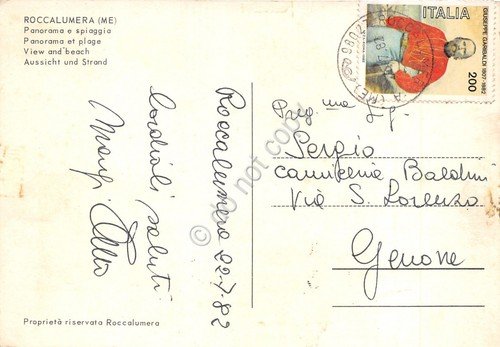 ROCCALUMERA (ME)
Panorama e spiaggia
Panorama et plage
View and beach
Aussicht und Strand
Roccalumera 22-7-82
Cordiali saluti
Proprietà riservata Roccalumera
ITALIA
GIUSEPPE GARIBALDI 1807-1882
200
Preg.mo Sg.
Sergio
camiceria Baldini
Via S. Lorenzo
Genova
do not copy